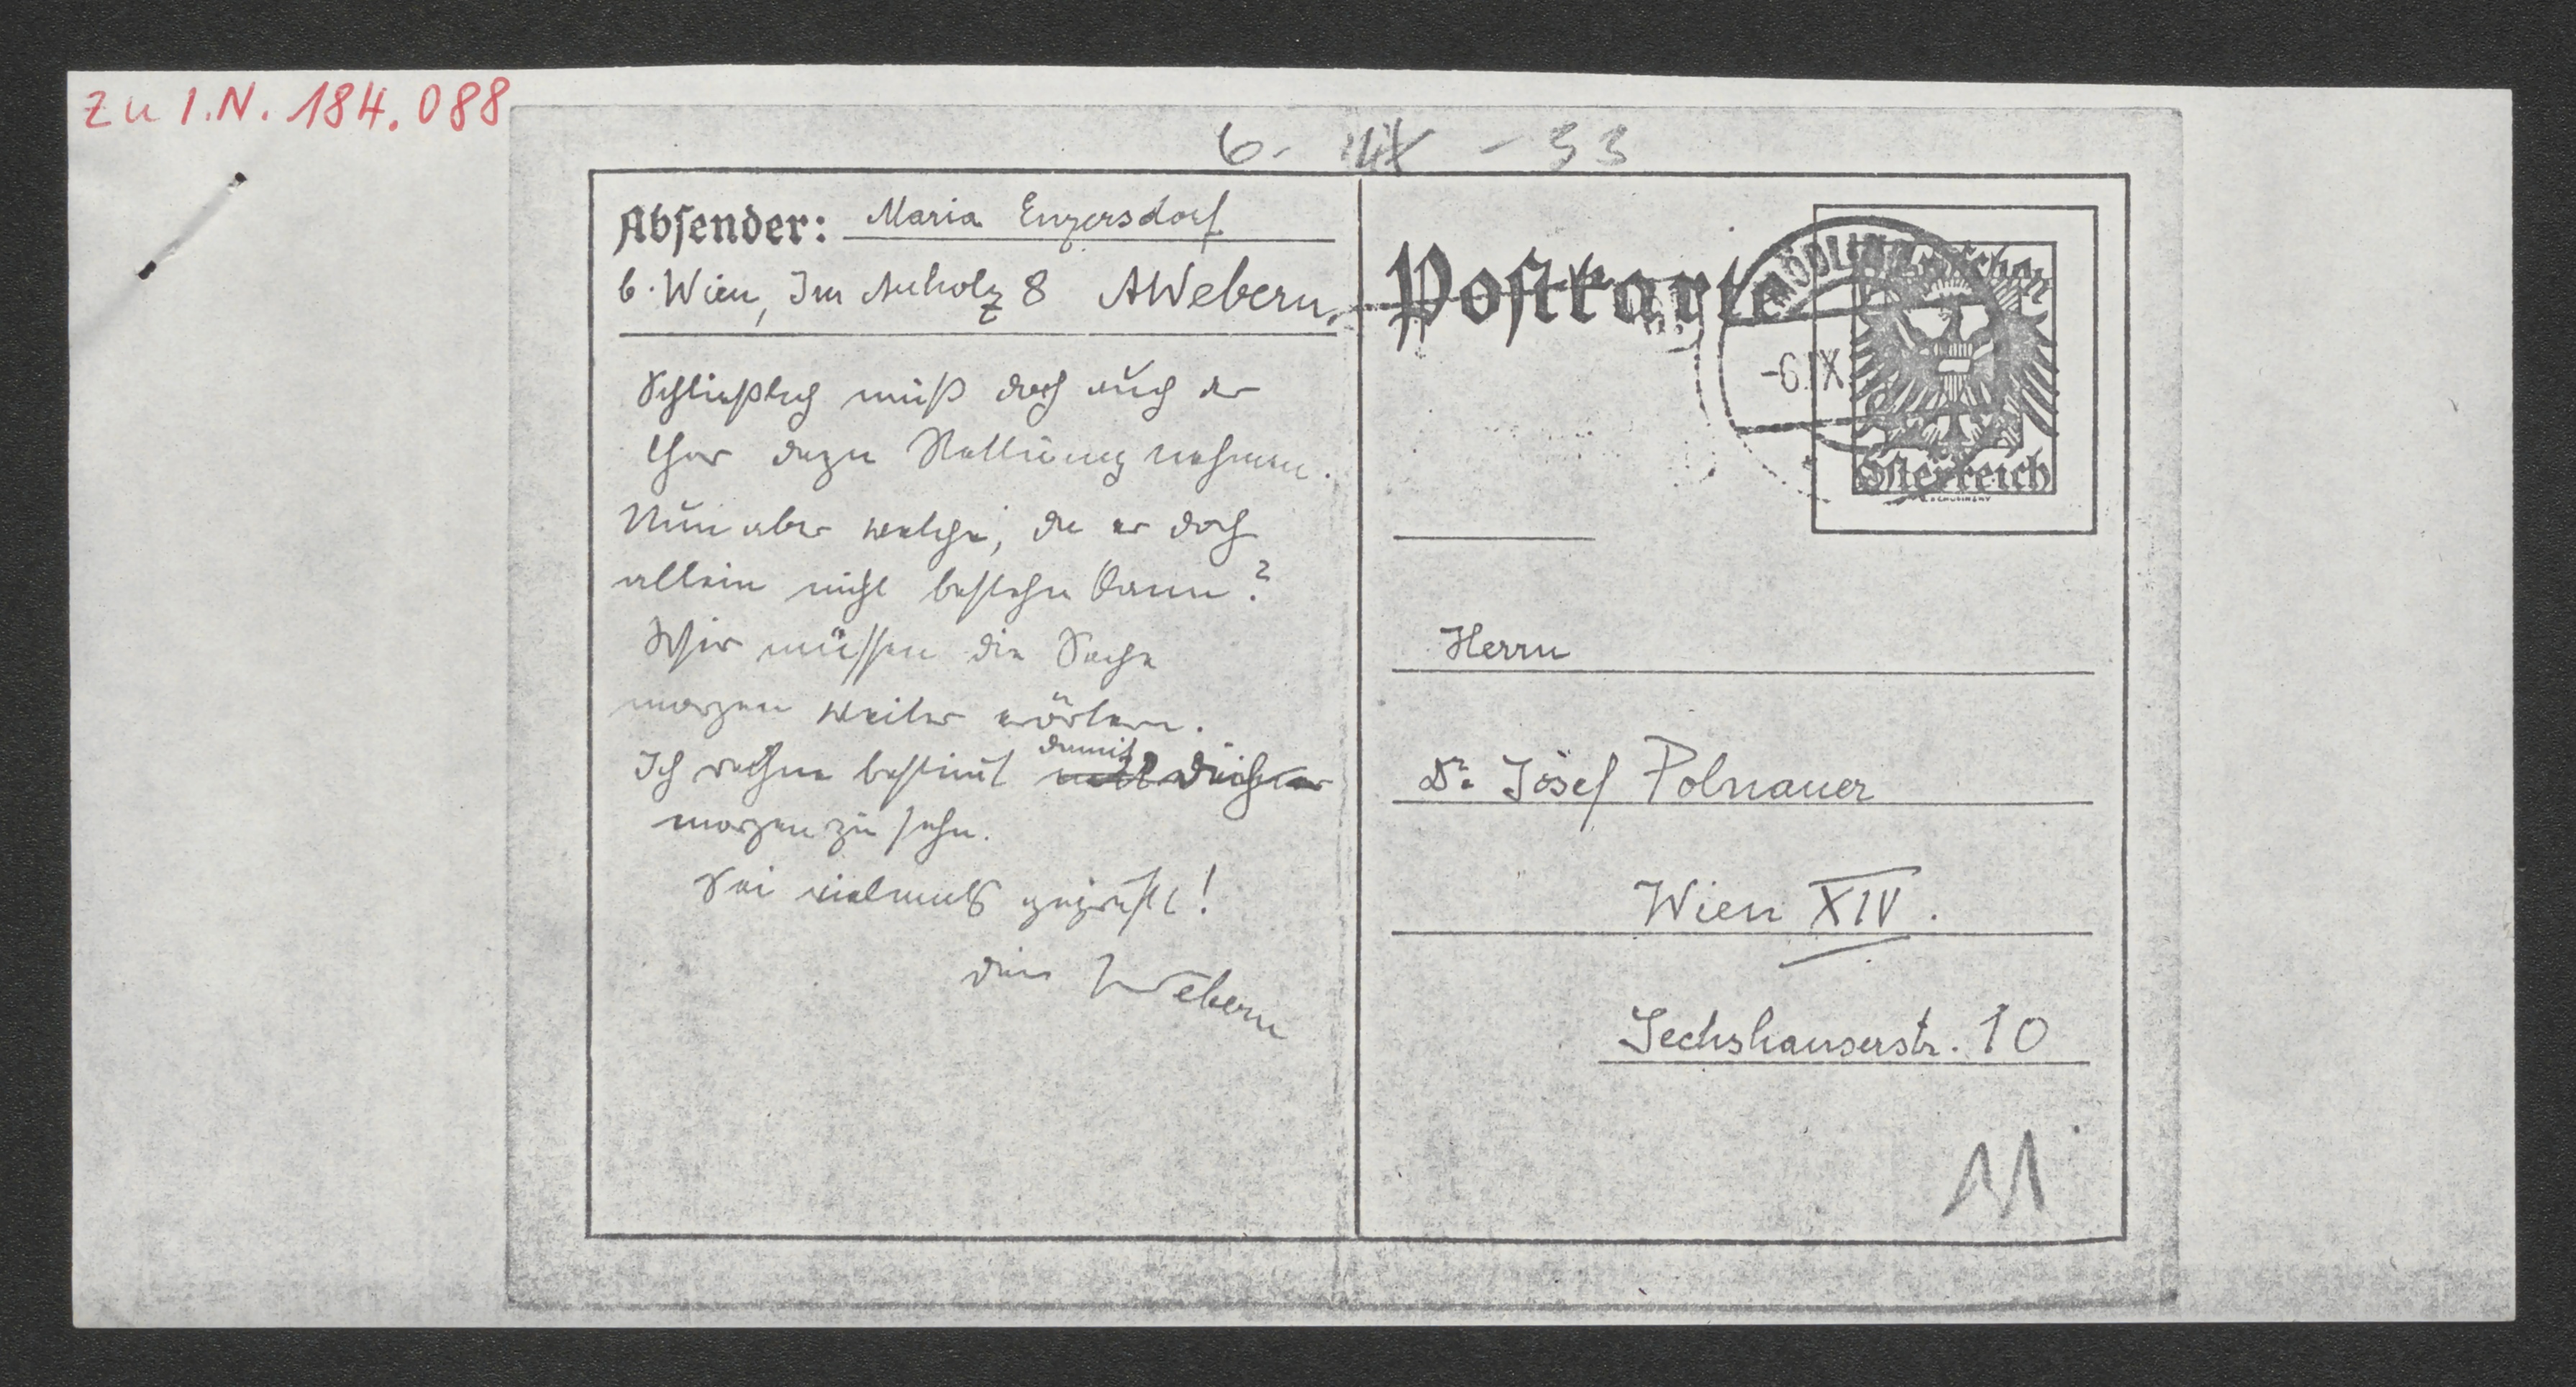 zu I.N. 184.088
6. IX - 33
Absender: Maria Enzersdorf
b. Wien, Im Auholz 8 AWebern.
Postkarte
MÖDLING
-6.IX
Österreich
Schließlich muß doch auch der
Chor dazu Stellung nehmen.
Nun aber welche, da er doch
allein nicht bestehn kann?
Wir müssen die Sache
morgen weiter erörtern.
Ich rechne bestimmt damit Dich
morgen zu sehn.
Sei vielmals gegrüßt!
Dein Webern
Herrn
Dr. Josef Polnauer
Wien XIV.
Sechshauserstr. 10